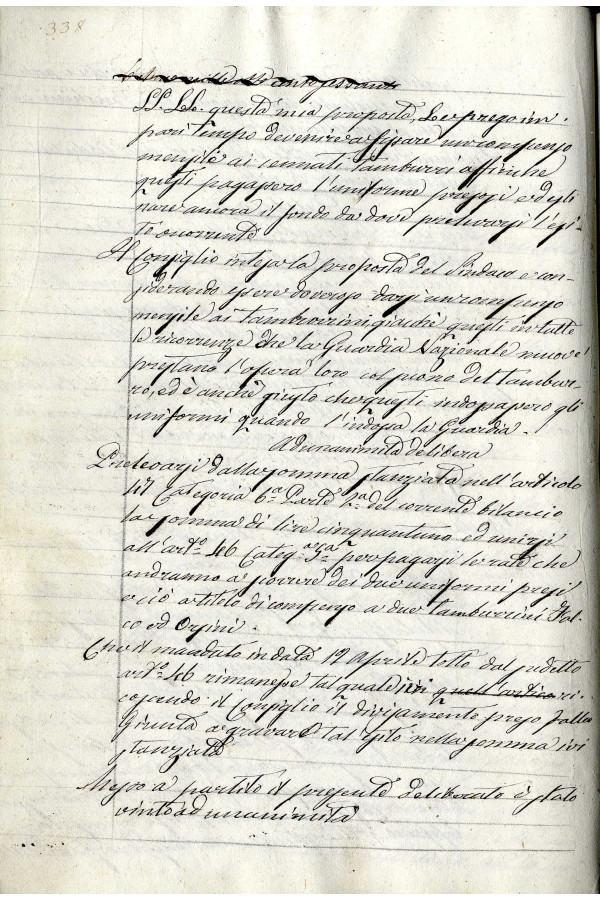 338
SS. LL. questa mia proposta, Le prego in
pari tempo devenire a fissare un compenso
mensile ai cennati tamburri affinche
questi pagassero l'uniforme presosi ed
nare ancora il fondo da dove prelevarsi l'esi-
to occorrente
Il Consiglio intesa la proposta del Sindaco e con-
siderando essere doveroso darsi un compenso
mensile ai Tamborrini, giacchè questi in tutte
le ricorrenze che la Guardia Nazionale muove
prestano l'opera loro col suono del tambur-
ro, ed è anche giusto che questi indossassero gli
uniformi quando l'indossa la Guardia.
Ad unanimità delibera
Prelevarsi dalla somma stanziata nell'articolo
47 Categoria 6a Parte 2a del corrente bilancio
la somma di lire cinquantuno ed unirsi
all'arto 46 Categ.a 5a per pagarsi le rate che
andranno a scorrere dei due uniformi presi
e ciò a titolo di compenso a due tamburrini Fal-
co ed Orsini.
Che il mandato in data 12 Aprile tolto dal sudetto
arto 46 rimanesse tal quale ivi quell'artico ri-
cosendo il Consiglio il divisamento preso dalla
Giunta a gravare tal esito nella somma ivi
stanziata
Messo a partito il presente deliberato è stato
vinto ad unanimità